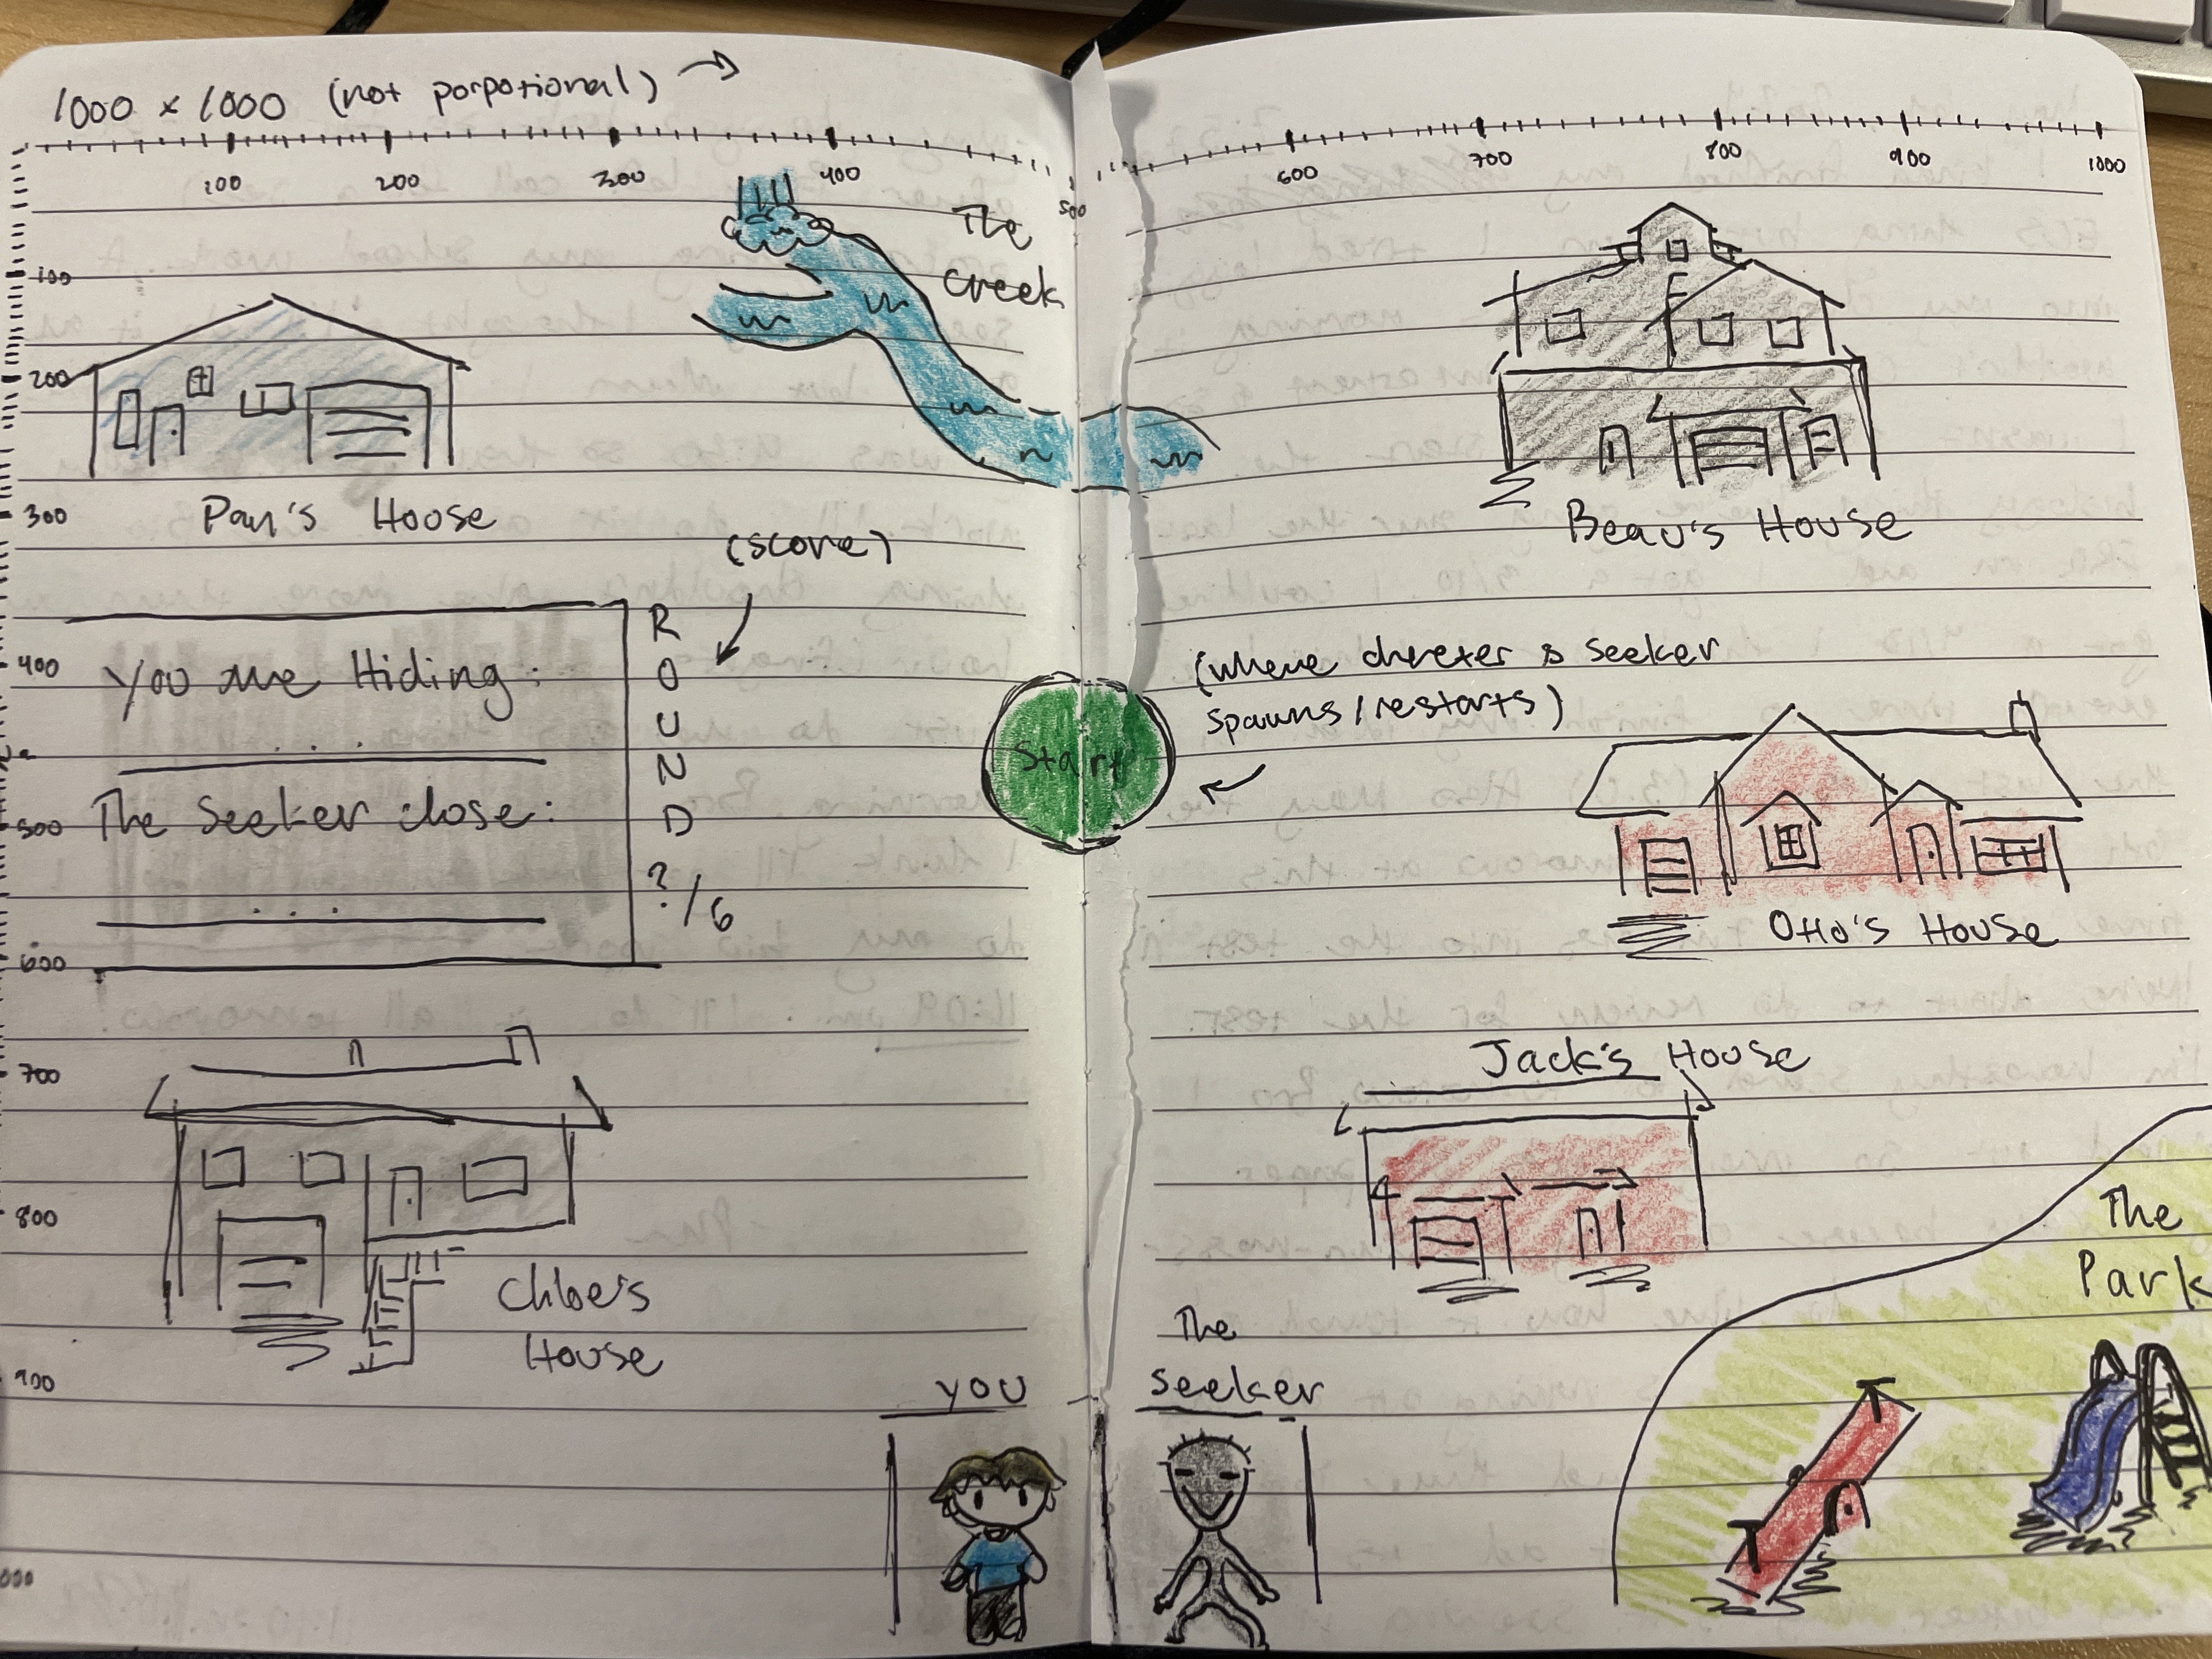 1000 x 1000 (not porpotional) →
100 200 300 400 500 600 700 800 900 1000
100
200
300
400
500
600
700
800
900
The
Creek
Beau's House
House
(score)
You are Hiding:
. . .
The Seeker close:
. . .
R
O
U
N
D
?/6
Start
(where & seeker
spawns/restarts)
Otto's House
Jack's House
Chloe's
House
The
Park
you
The
Seeker